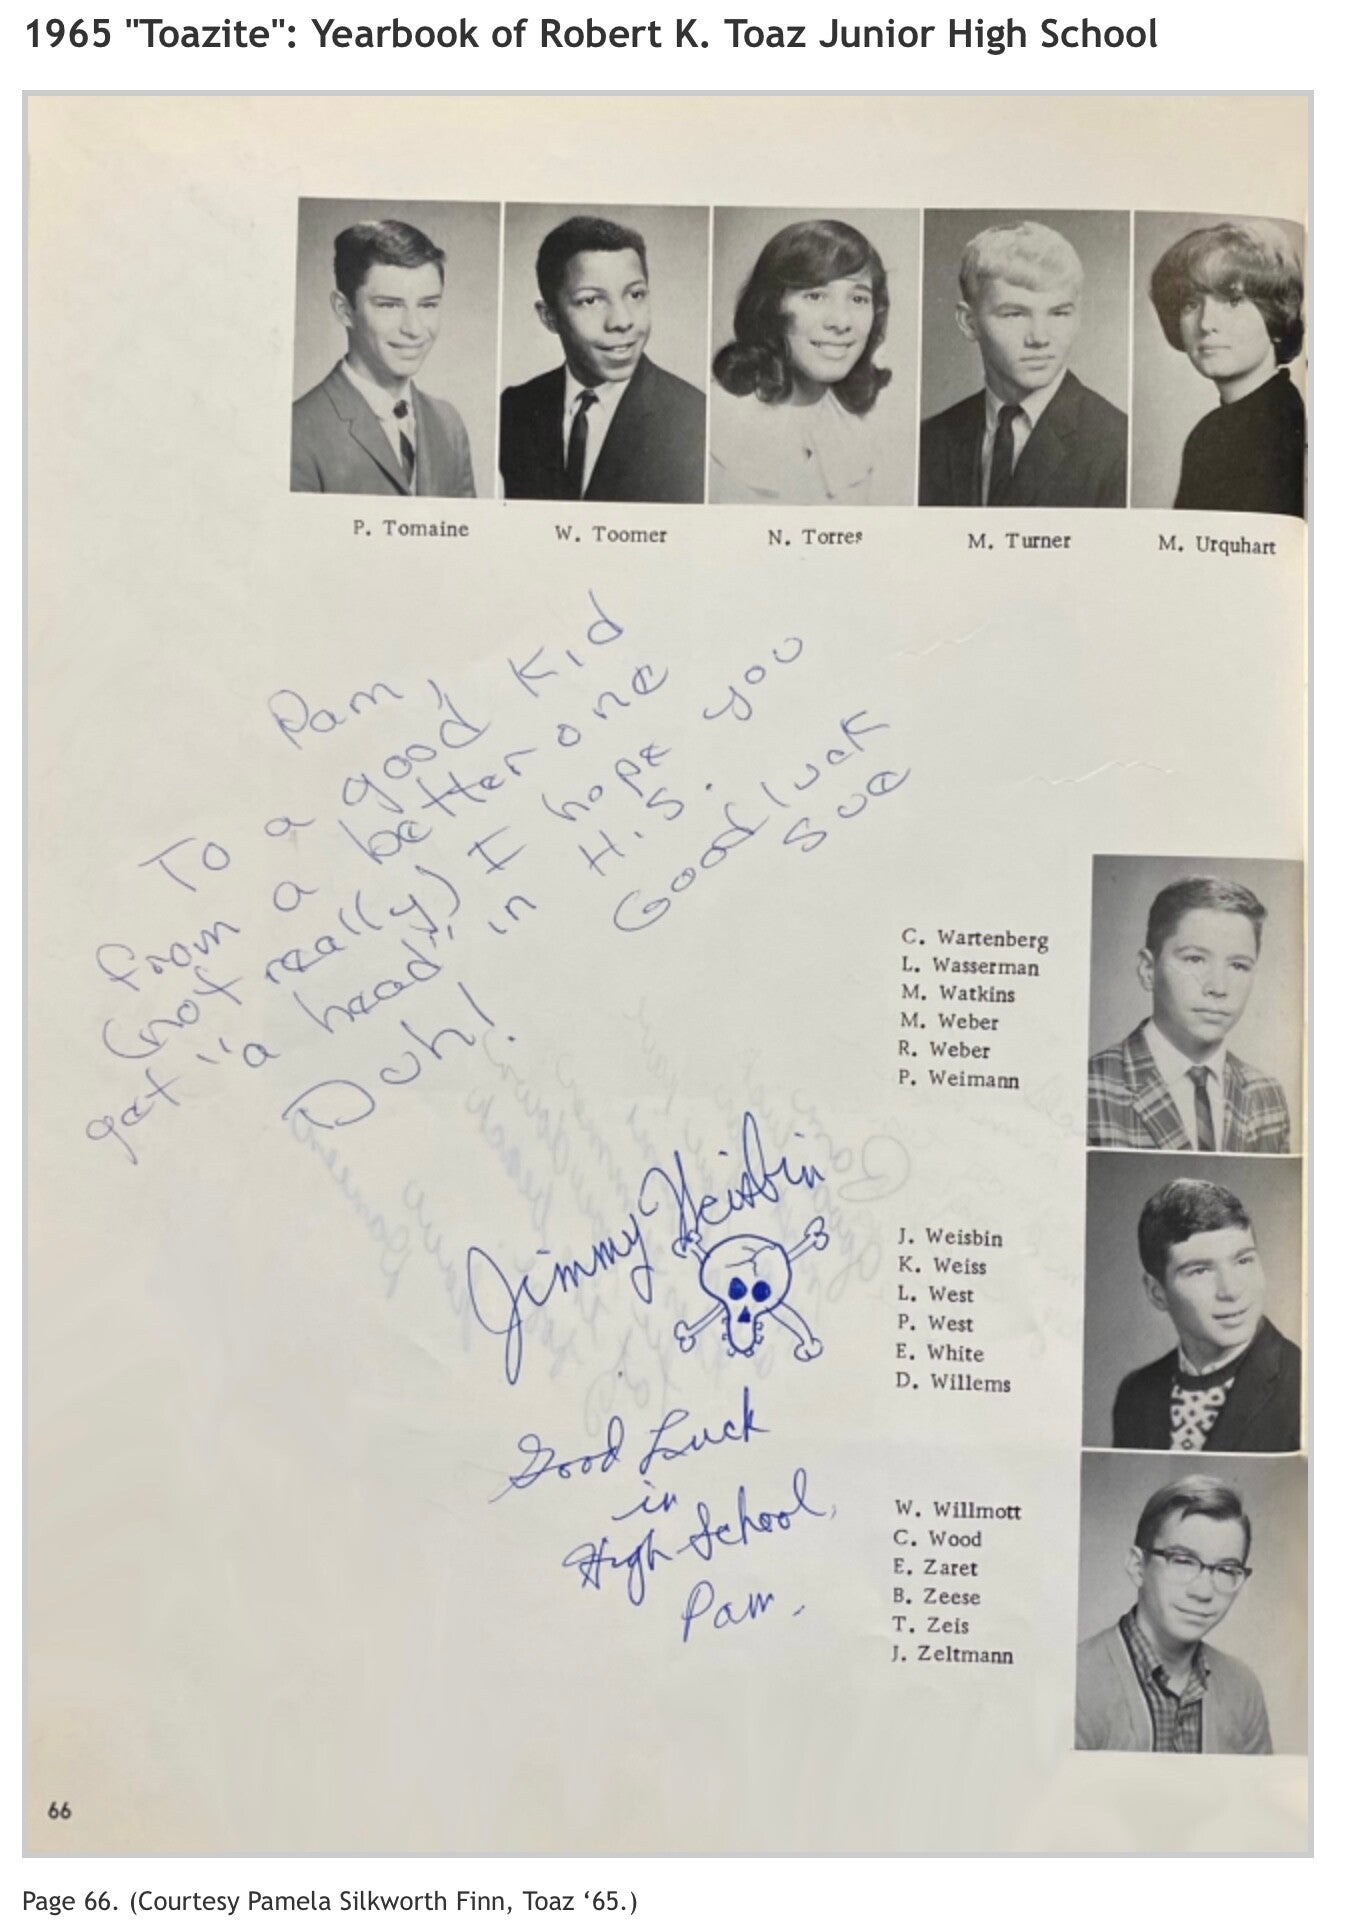 1965 "Toazite": Yearbook of Robert K. Toaz Junior High School
P. Tomaine
W. Toomer
N. Torres
M. Turner
M. Urquhart
Pam,
To a good kid
from a better one
(not really) I hope you
get "a head" in H.S.
Duh!
Good luck
Sue
C. Wartenberg
L. Wasserman
M. Watkins
M. Weber
R. Weber
P. Weimann
Jimmy Weisbin
J. Weisbin
K. Weiss
L. West
P. West
E. White
D. Willems
Good Luck
in
High School,
Pam.
W. Willmott
C. Wood
E. Zaret
B. Zeese
T. Zeis
J. Zeltmann
66
Page 66. (Courtesy Pamela Silkworth Finn, Toaz ‘65.)